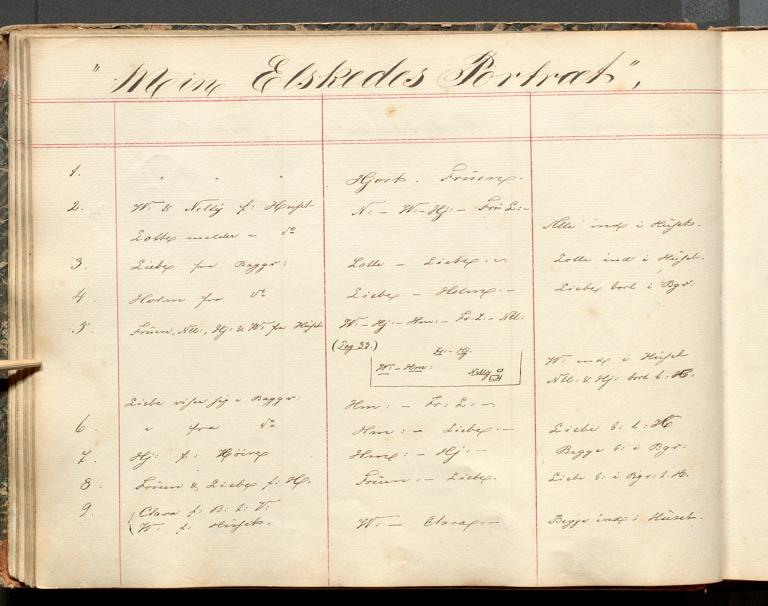 "Min Elskedes Portræt",
1. " " " Hjort. Fruen.
2. W: & Nelly f: Huset N: – W: – Hj: – Fru L: –
Alle ind i Huset.
Lotte melder " do
3. Liebe fra Baggr: Lotte – Liebe: – Lotte ind i Huset.
4. Holm fra do Liebe – Holm: – Liebe bort i Bgr:
5. Fruen, Nll:, Hj: & W: fra Huset W: – Hj: – Hm: – Fr: L – Nll:
(Pag 33.) Fr: – Hj.
W: – Hm: Nelly
W: ind i Huset
Nll: & Hj: bort t: H.
Liebe viser sig i Baggr: Hm: – Fr: L: –
6 " fra do Hm: – Liebe: – Liebe b: t: H
7. Hj: f: Höire Hm: – Hj: – Begge b: i Bgr:
8. Fruen & Liebe f: H. Fruen: – Liebe. Liebe b: i Bgr: t. H.
9. Clara f: B: t: V:
W: f: Huset. W: – Clara: – Begge ind i Huset.